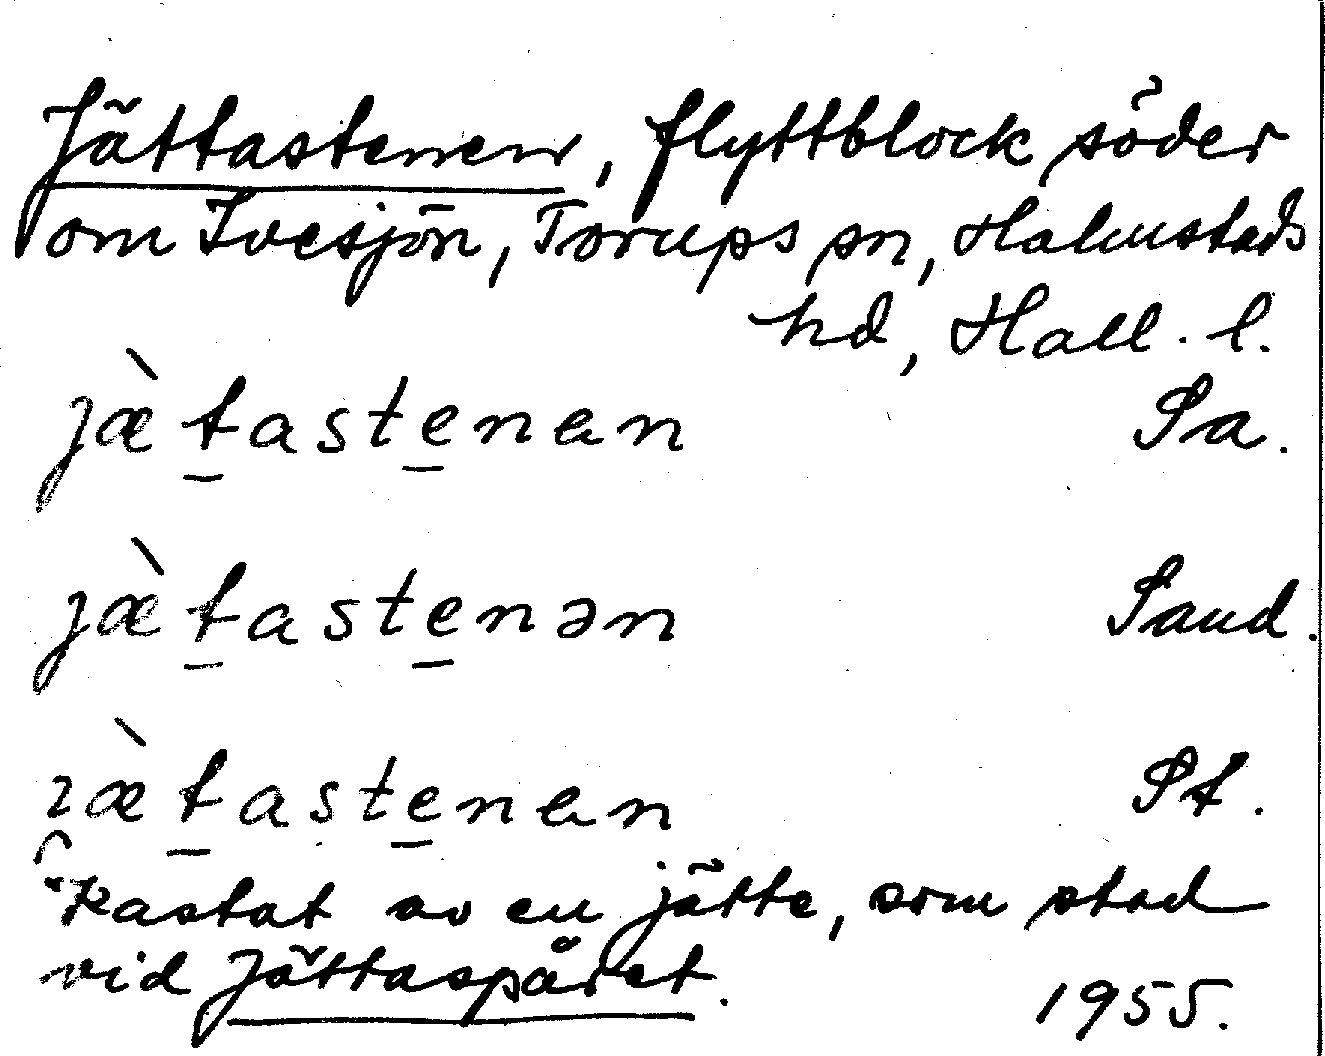 Jättastenen, flyttblock söder
om Ivesjön, Torups sn, Halmstads
hd, Hall. l.
jæ̀t̠aste̠nen Sa.
jæ̀t̠aste̠nən Sand.
ɪ̯æ̀t̠aste̠nen St.
Kastat av en jätte, som stod
vid Jättaspåret. 1955.